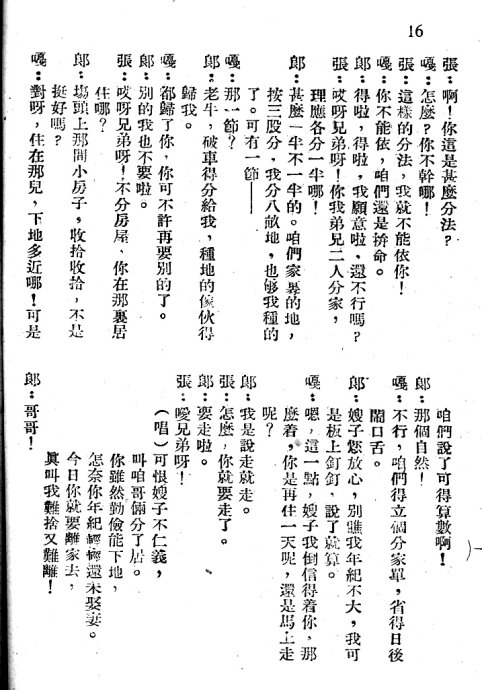 16
張：啊！你這是甚麼分法？
嘎：怎麼？你不幹哪！
張：這樣的分法，我就不能依你！
嘎：你不能依，咱們還是拚命。
郎：得啦，得啦，我願意啦，還不行嗎？
張：哎呀兄弟呀！你我弟兄二人分家，
理應各分一半哪！
郎：甚麼一半不一半的。咱們家畧的地，
按三股分，我分八畝地，也够我種的
了。可有一節——
嘎：那一節？
郎：老牛，破車得分給我，種地的傢伙得
歸我。
嘎：都歸了你，你可不許再要別的了。
郎：別的我也不要啦。
張：哎呀兄弟呀！不分房屋、你在那裏居
住哪？
郎：塲頭上那間小房子，收拾收拾，不是
挺好嗎？
嘎：對呀，住在那兒，下地多近哪！可是
咱們說了可得算數啊！
郎：那個自然！
嘎：不行，咱們得立個分家單，省得日後
鬧口舌。
郎：嫂子您放心，別雖我年紀不大，我可
是板上釘釘，說了就算。
嘎：嗯，這一點，嫂子我倒信得着你，那
麼着，你是再住一天呢，還是馬上走
呢？
郎：我是說走就走。
張：怎麼，你就要走了。
郎：要走啦。
張：噯兄弟呀！
（唱）可恨嫂子不仁義，
叫咱哥倆分了居。
你雖然勤儉能下地，
怎奈你年紀輕輕還未娶妻。
今日你就要離家去，
眞叫我難捨又難離！
郎：哥哥！